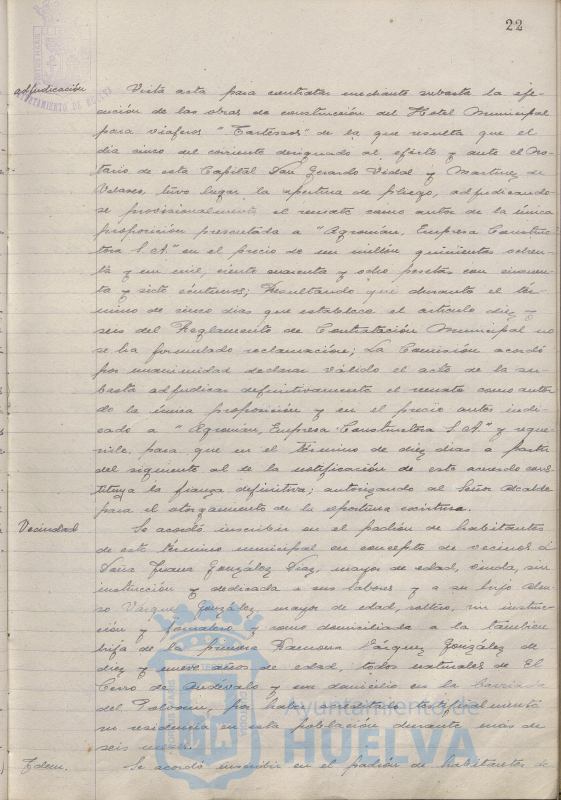 22
adjudicación
Visto acta para contratar mediante subasta la eje-
cución de las obras de construcción del Hotel Municipal
para viajeros "Tartessos" de la que resulta que el
día cinco del corriente designado al efecto y ante el No-
tario de esta Capital Don Gerardo Vidal y Martinez de
Velasco, tuvo lugar la apertura de pliego, adjudicando-
se provisionalmente el remate como autor de la única
proposición presentada a "Agroman, Empresa Construc-
tora S.A." en el precio de un millón quinientas ochen-
ta y un mil, ciento cuarenta y ocho pesetas con cincuen-
ta y siete céntimos; Resultando que durante el tér-
mino de cinco días que establece el artículo diez y
seis del Reglamento de Contratación Municipal no
se ha formulado reclamación; La Comisión acordó
por unanimidad declarar válido el acto de la su-
basta adjudicar definitivamente el remate como autor
de la única proposición y en el precio antes indi-
cado a "Agroman, Empresa Constructora S.A." y reque-
rirle para que en el término de diez días a partir
del siguiente al de la notificación de este acuerdo cons-
tituya la fianza definitiva; autorizando al Señor Alcalde
para el otorgamiento de la oportuna escritura.
Vecindad
Se acordó inscribir en el padrón de habitantes
de este término municipal en concepto de vecinos á
Doña Juana González Díaz, mayor de edad, viuda, sin
instrucción y dedicada a sus labores y a su hijo
Vázquez González, mayor de edad, soltero, sin instruc-
ción y jornalero y como domiciliada a la tambien
hija de la primera Ramona Vázquez González de
diez y nueve años de edad, todos naturales de El
Cerro de Andévalo y con domicilio en la Barriada
del Polvorin, por haber acreditado
su residencia en esta población durante más de
seis meses.
Idem.
Se acordó inscribir en el padrón de habitantes de
Ayuntamiento de
HUELVA